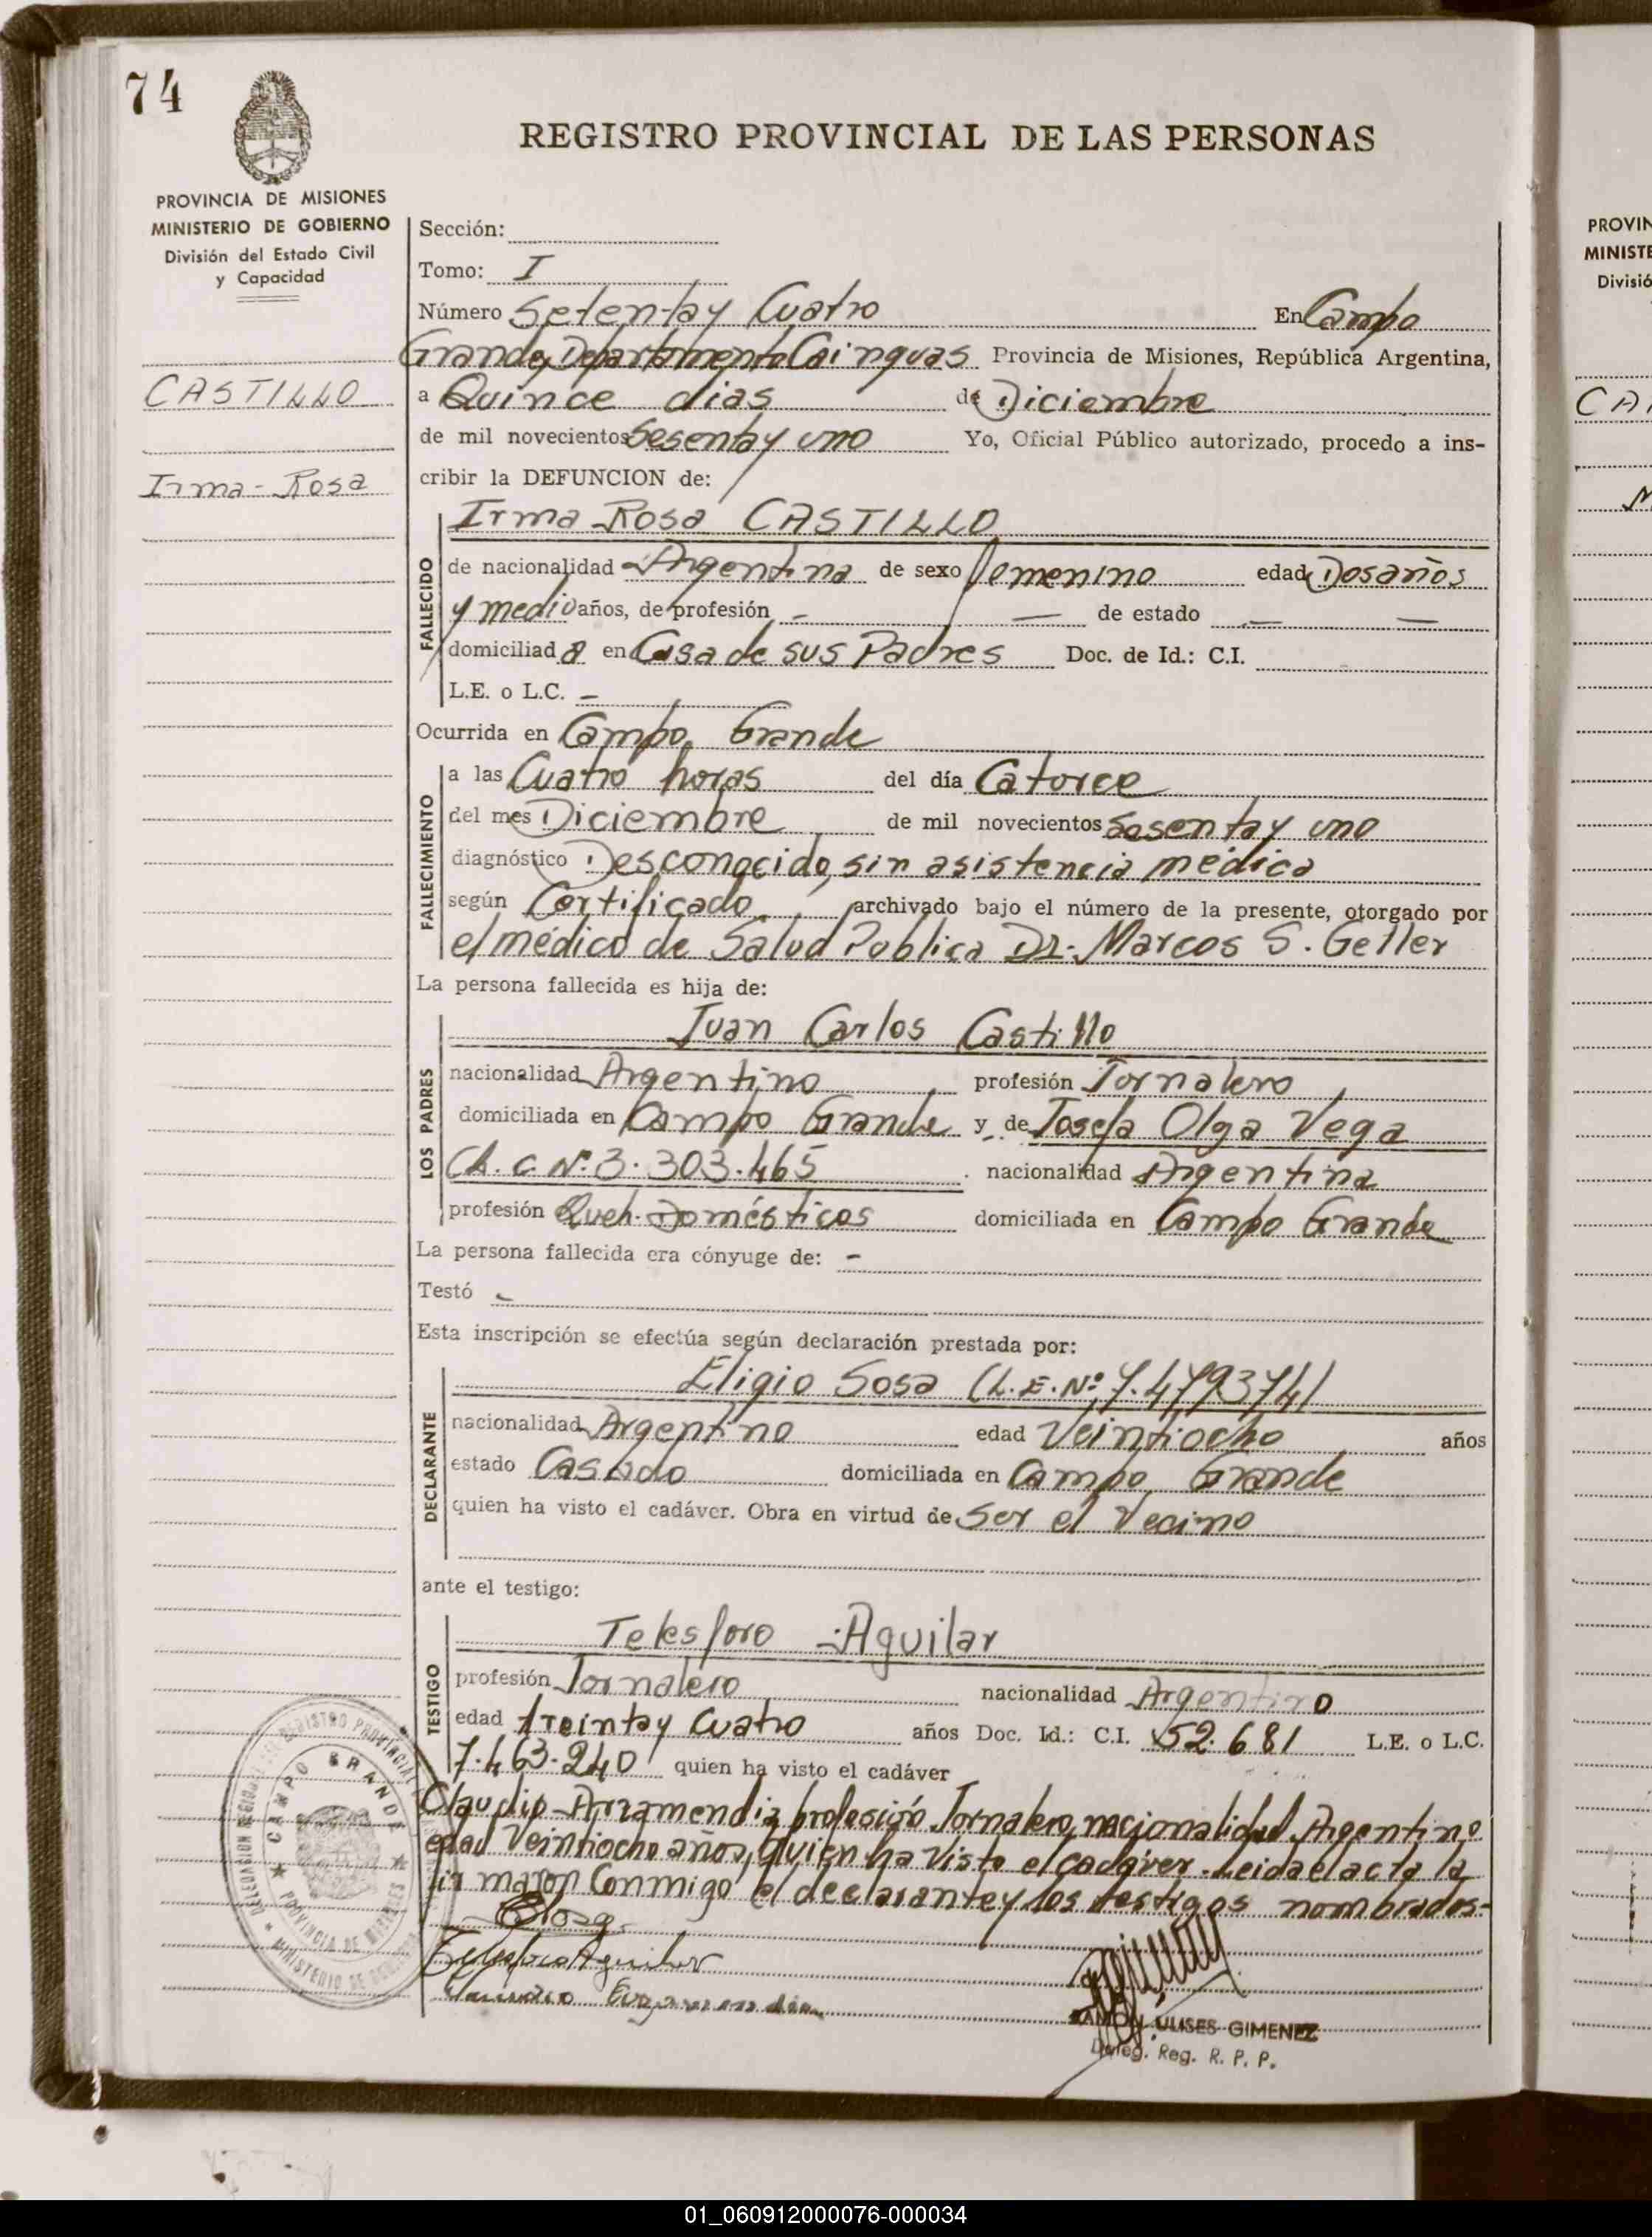 74
REGISTRO PROVINCIAL DE LAS PERSONAS
PROVINCIA DE MISIONES
MINISTERIO DE GOBIERNO
División del Estado Civil
y Capacidad
CASTILLO
Irma - Rosa
Sección:
Tomo: I
Número Setenta y Cuatro En Campo
Grande, Departamento Cainguas Provincia de Misiones, República Argentina,
a Quince dias de Diciembre
de mil novecientos Sesenta y uno Yo, Oficial Público autorizado, procedo a ins-
cribir la DEFUNCION de:
FALLECIDO
Irma Rosa CASTILLO
de nacionalidad Argentina de sexo femenino edad Dos años
y medio años, de profesión - — de estado — —
domiciliada en Casa de sus Padres Doc. de Id.: C.I.
L.E. o L.C. -
Ocurrida en Campo Grande
FALLECIMIENTO
a las Cuatro horas del día Catorce
del mes Diciembre de mil novecientos Sesenta y uno
diagnóstico Desconocido, sin asistencia médica
según Certificado archivado bajo el número de la presente, otorgado por
el médico de Salud Publica Dr. Marcos S. Geller
La persona fallecida es hija de:
LOS PADRES
Juan Carlos Castillo
nacionalidad Argentino profesión Jornalero
domiciliada en Campo Grande y de Josefa Olga Vega
(L.C. Nº 3.303.465 nacionalidad Argentina
profesión Queh. Domésticos domiciliada en Campo Grande
La persona fallecida era cónyuge de: -
Testó -
Esta inscripción se efectúa según declaración prestada por:
DECLARANTE
Eligio Sosa (L.E. Nº 7.479374)
nacionalidad Argentino edad Veintiocho años
estado Casado domiciliada en Campo Grande
quien ha visto el cadáver. Obra en virtud de Ser el Vecino
ante el testigo:
TESTIGO
Telesforo Aguilar
profesión Jornalero nacionalidad Argentino
edad treinta y cuatro años Doc. Id.: C.I. 52.681 L.E. o L.C.
7.463.240 quien ha visto el cadáver
Claudio Arizamendia profesión Jornalero, nacionalidad Argentino
edad Veintiocho años, quien ha visto el cadáver. Leida el acta la
firmaron Conmigo el declarante y los testigos nombrados.-
ESosa
Telesforo Aguilar
Claudio
RAMON ULISES GIMENEZ
Deleg. Reg. R. P. P.
REGISTRO PROVINCIAL
CAMPO GRANDE
PROVINCIA DE MISIONES
MINISTERIO DE
PROVIN
MINISTE
Divisió
CA
01_060912000076-000034